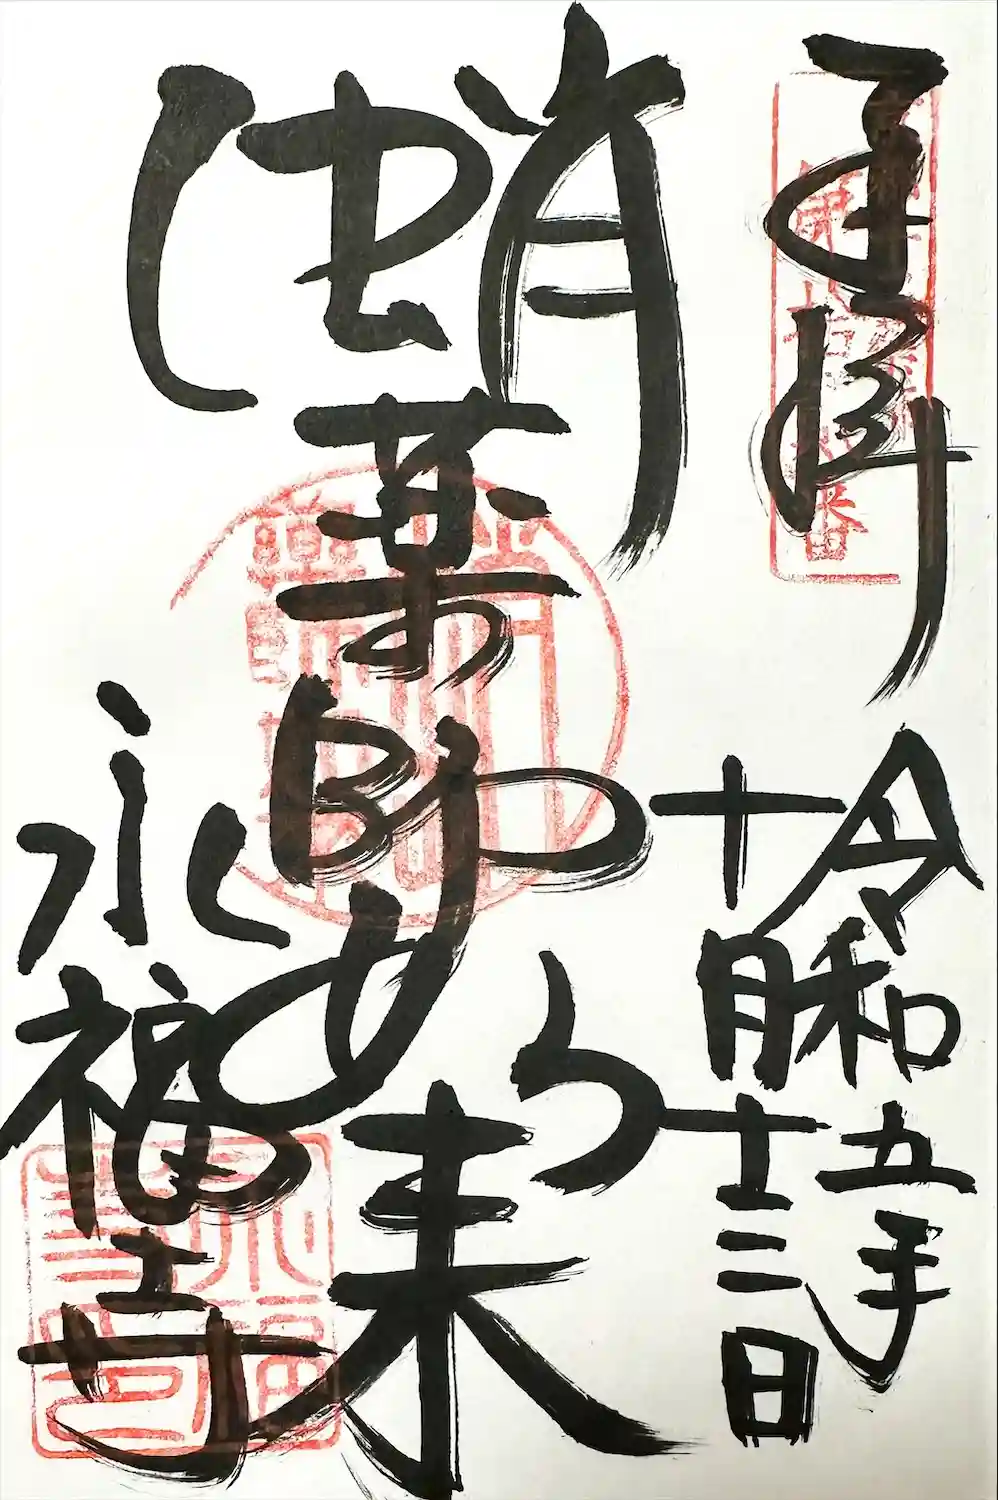 令和五年
十月十三日
蛸薬師如来
永福寺